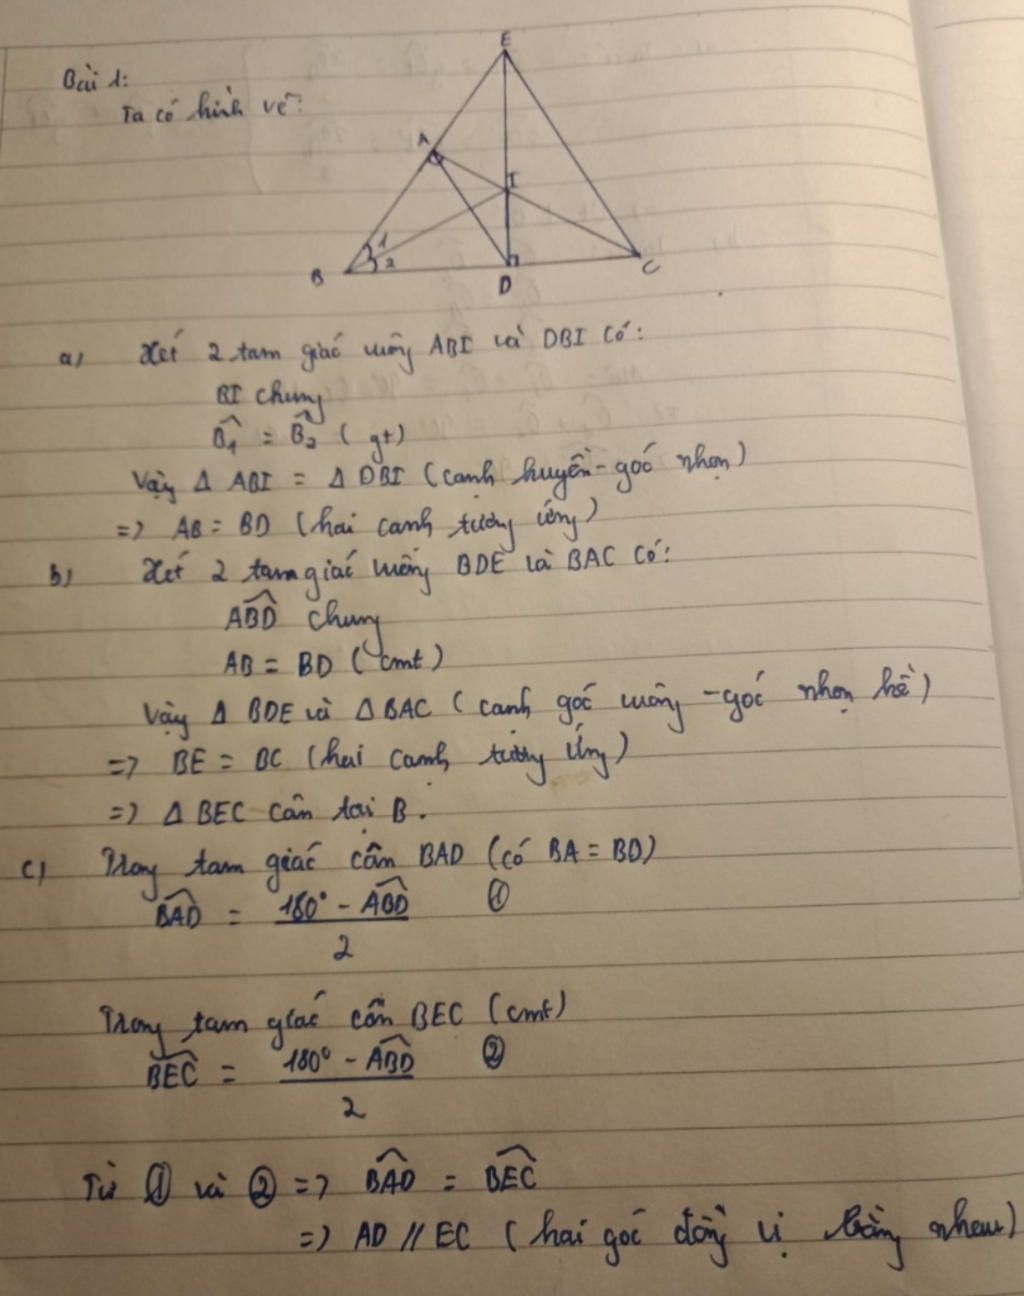 Bài 1:
Ta có hình vẽ:
E
A
I
1
2
B
D
C
a) Xét 2 tam giác vuông ABI và DBI có:
BI chung
B̂₁ = B̂₂ (gt)
Vậy Δ ABI = Δ DBI (cạnh huyền - góc nhọn)
=> AB = BD (hai cạnh tương ứng)
b) Xét 2 tam giác vuông BDE và BAC có:
\widehat{ABD} chung
AB = BD (cmt)
Vậy Δ BDE và Δ BAC (cạnh góc vuông - góc nhọn kề)
=> BE = BC (hai cạnh tương ứng)
=> Δ BEC cân tại B.
c) Trong tam giác cân BAD (có BA = BD)
\widehat{BAD} = \frac{180° - \widehat{ABD}}{2} ①
Trong tam giác cân BEC (cmt)
\widehat{BEC} = \frac{180° - \widehat{ABD}}{2} ②
Từ ① và ② => \widehat{BAD} = \widehat{BEC}
=> AD // EC (hai góc đồng vị bằng nhau)